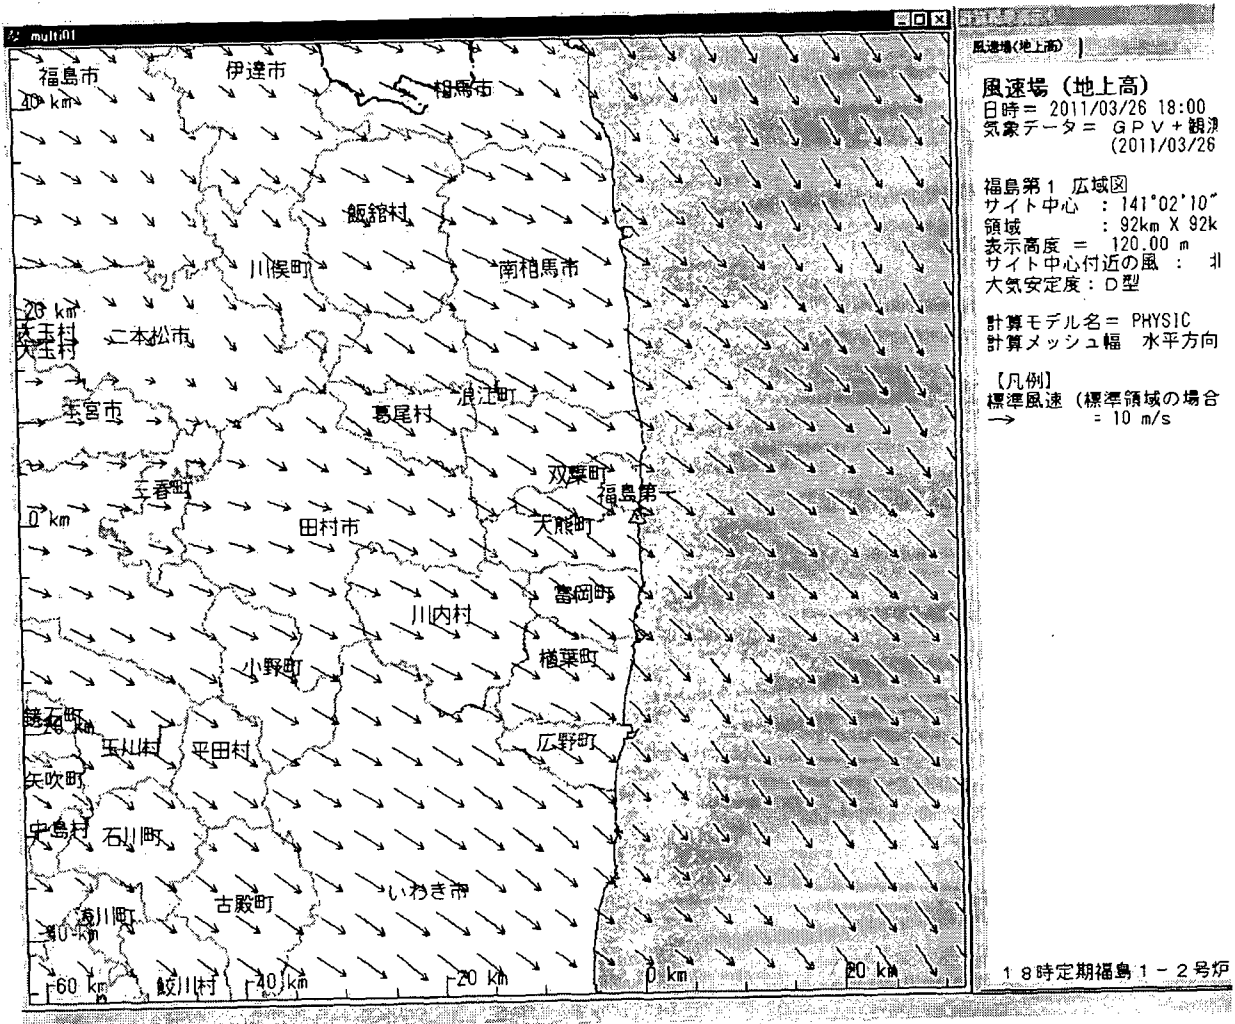 multi01
福島市
伊達市
相馬市
40 km
飯舘村
川俣町
南相馬市
20 km
大玉村
大玉村
二本松市
本宮市
葛尾村
浪江町
三春町
双葉町
福島第一
0 km
田村市
大熊町
富岡町
川内村
小野町
楢葉町
鏡石町
-20 km
玉川村
平田村
広野町
矢吹町
中島村
石川町
いわき市
古殿町
浅川町
-40 km
-60 km
鮫川村
-40 km
-20 km
0 km
20 km
風速場(地上高)
風速場（地上高）
日時＝ 2011/03/26 18:00
気象データ＝ ＧＰＶ＋観測
(2011/03/26
福島第１ 広域図
サイト中心 : 141°02'10"
領域 : 92km X 92k
表示高度 ＝ 120.00 m
サイト中心付近の風 : 北
大気安定度：Ｄ型
計算モデル名＝ PHYSIC
計算メッシュ幅 水平方向
【凡例】
標準風速（標準領域の場合
→ = 10 m/s
１８時定期福島１－２号炉